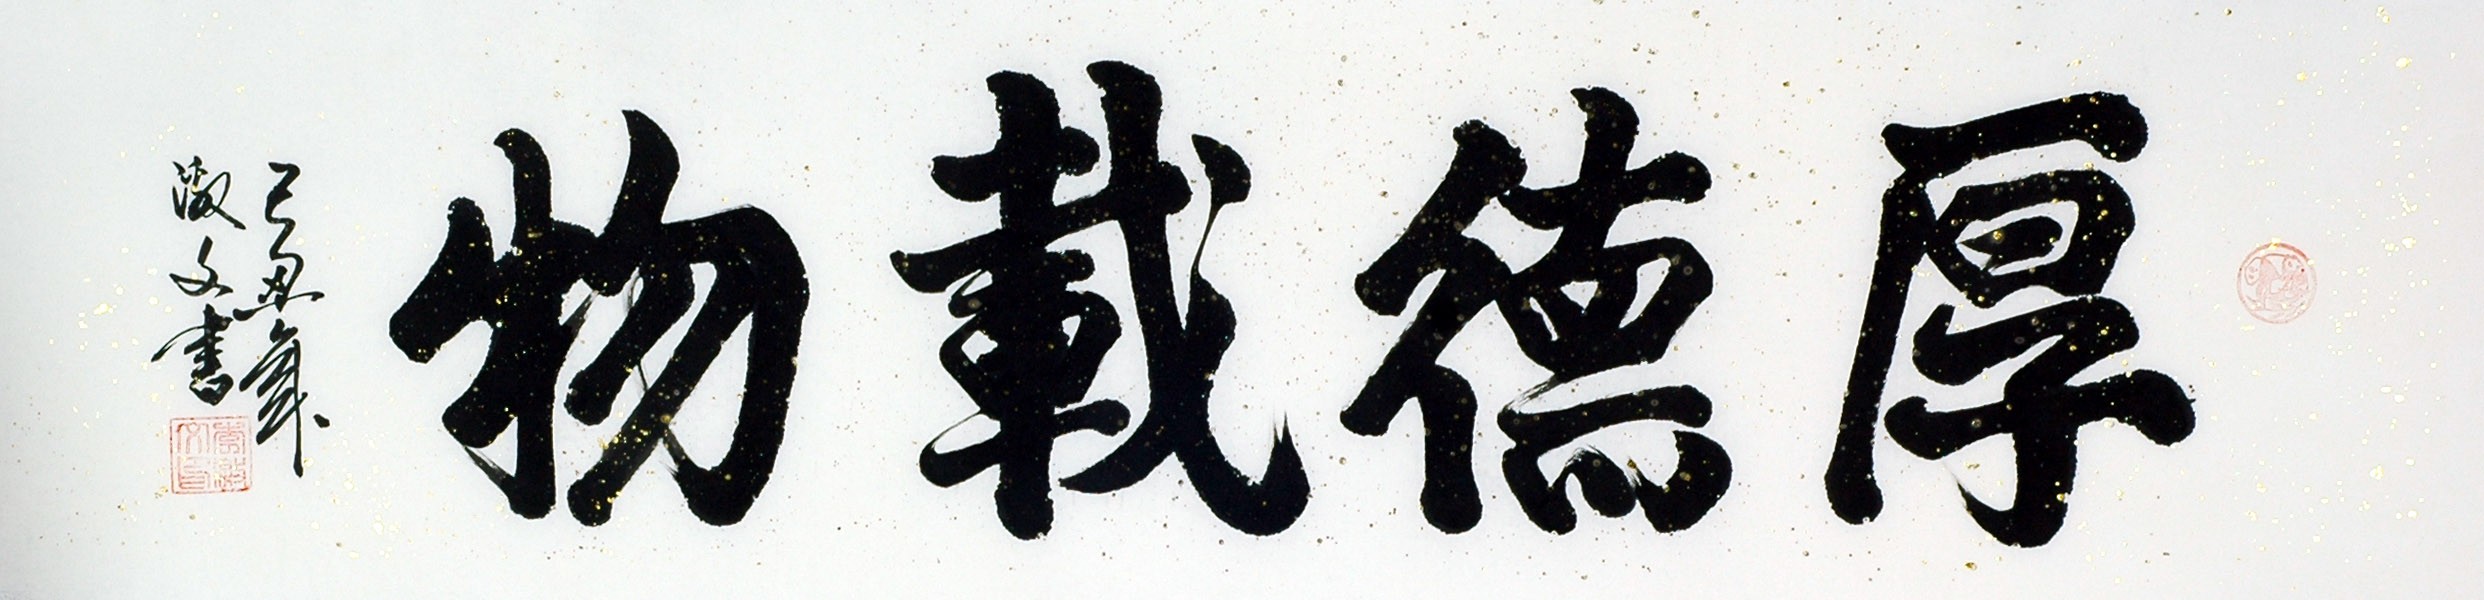 厚德載物
己丑年
激文書